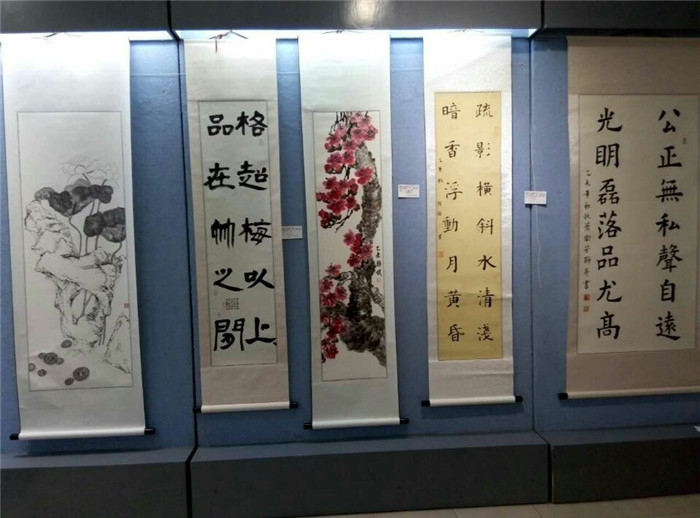 格超梅以上
品在竹之間
乙未
疏影橫斜水清淺
暗香浮動月黃昏
公正無私聲自遠
光明磊落品尤髙
乙未年初秋